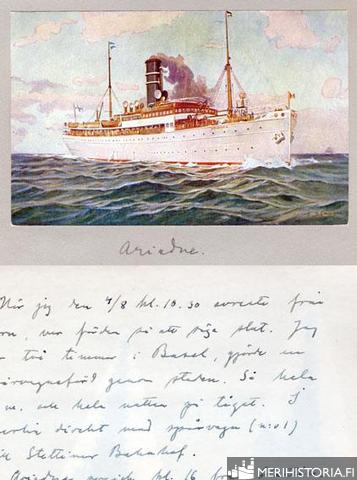 Ariadne.
När jag den 4/8 kl. 10.30 avreste från
ern, var färden så att säga slut. Jag
r två timmar i Basel, gjorde en
årvagnsfärd genom staden. Så hela
och hela natten på tåget. I
erlin direkt med spårvagn (n:o 1)
ill Stettiner Bahnhof.
Ariadne avgick kl. 16
MERIHISTORIA.FI